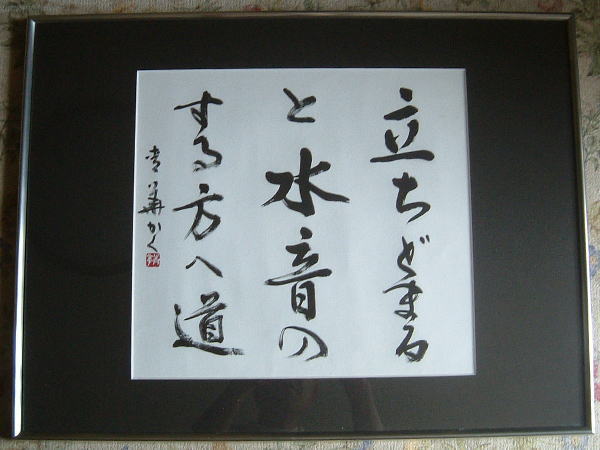 立ちどまる
と水音の
する方へ道
青華かく